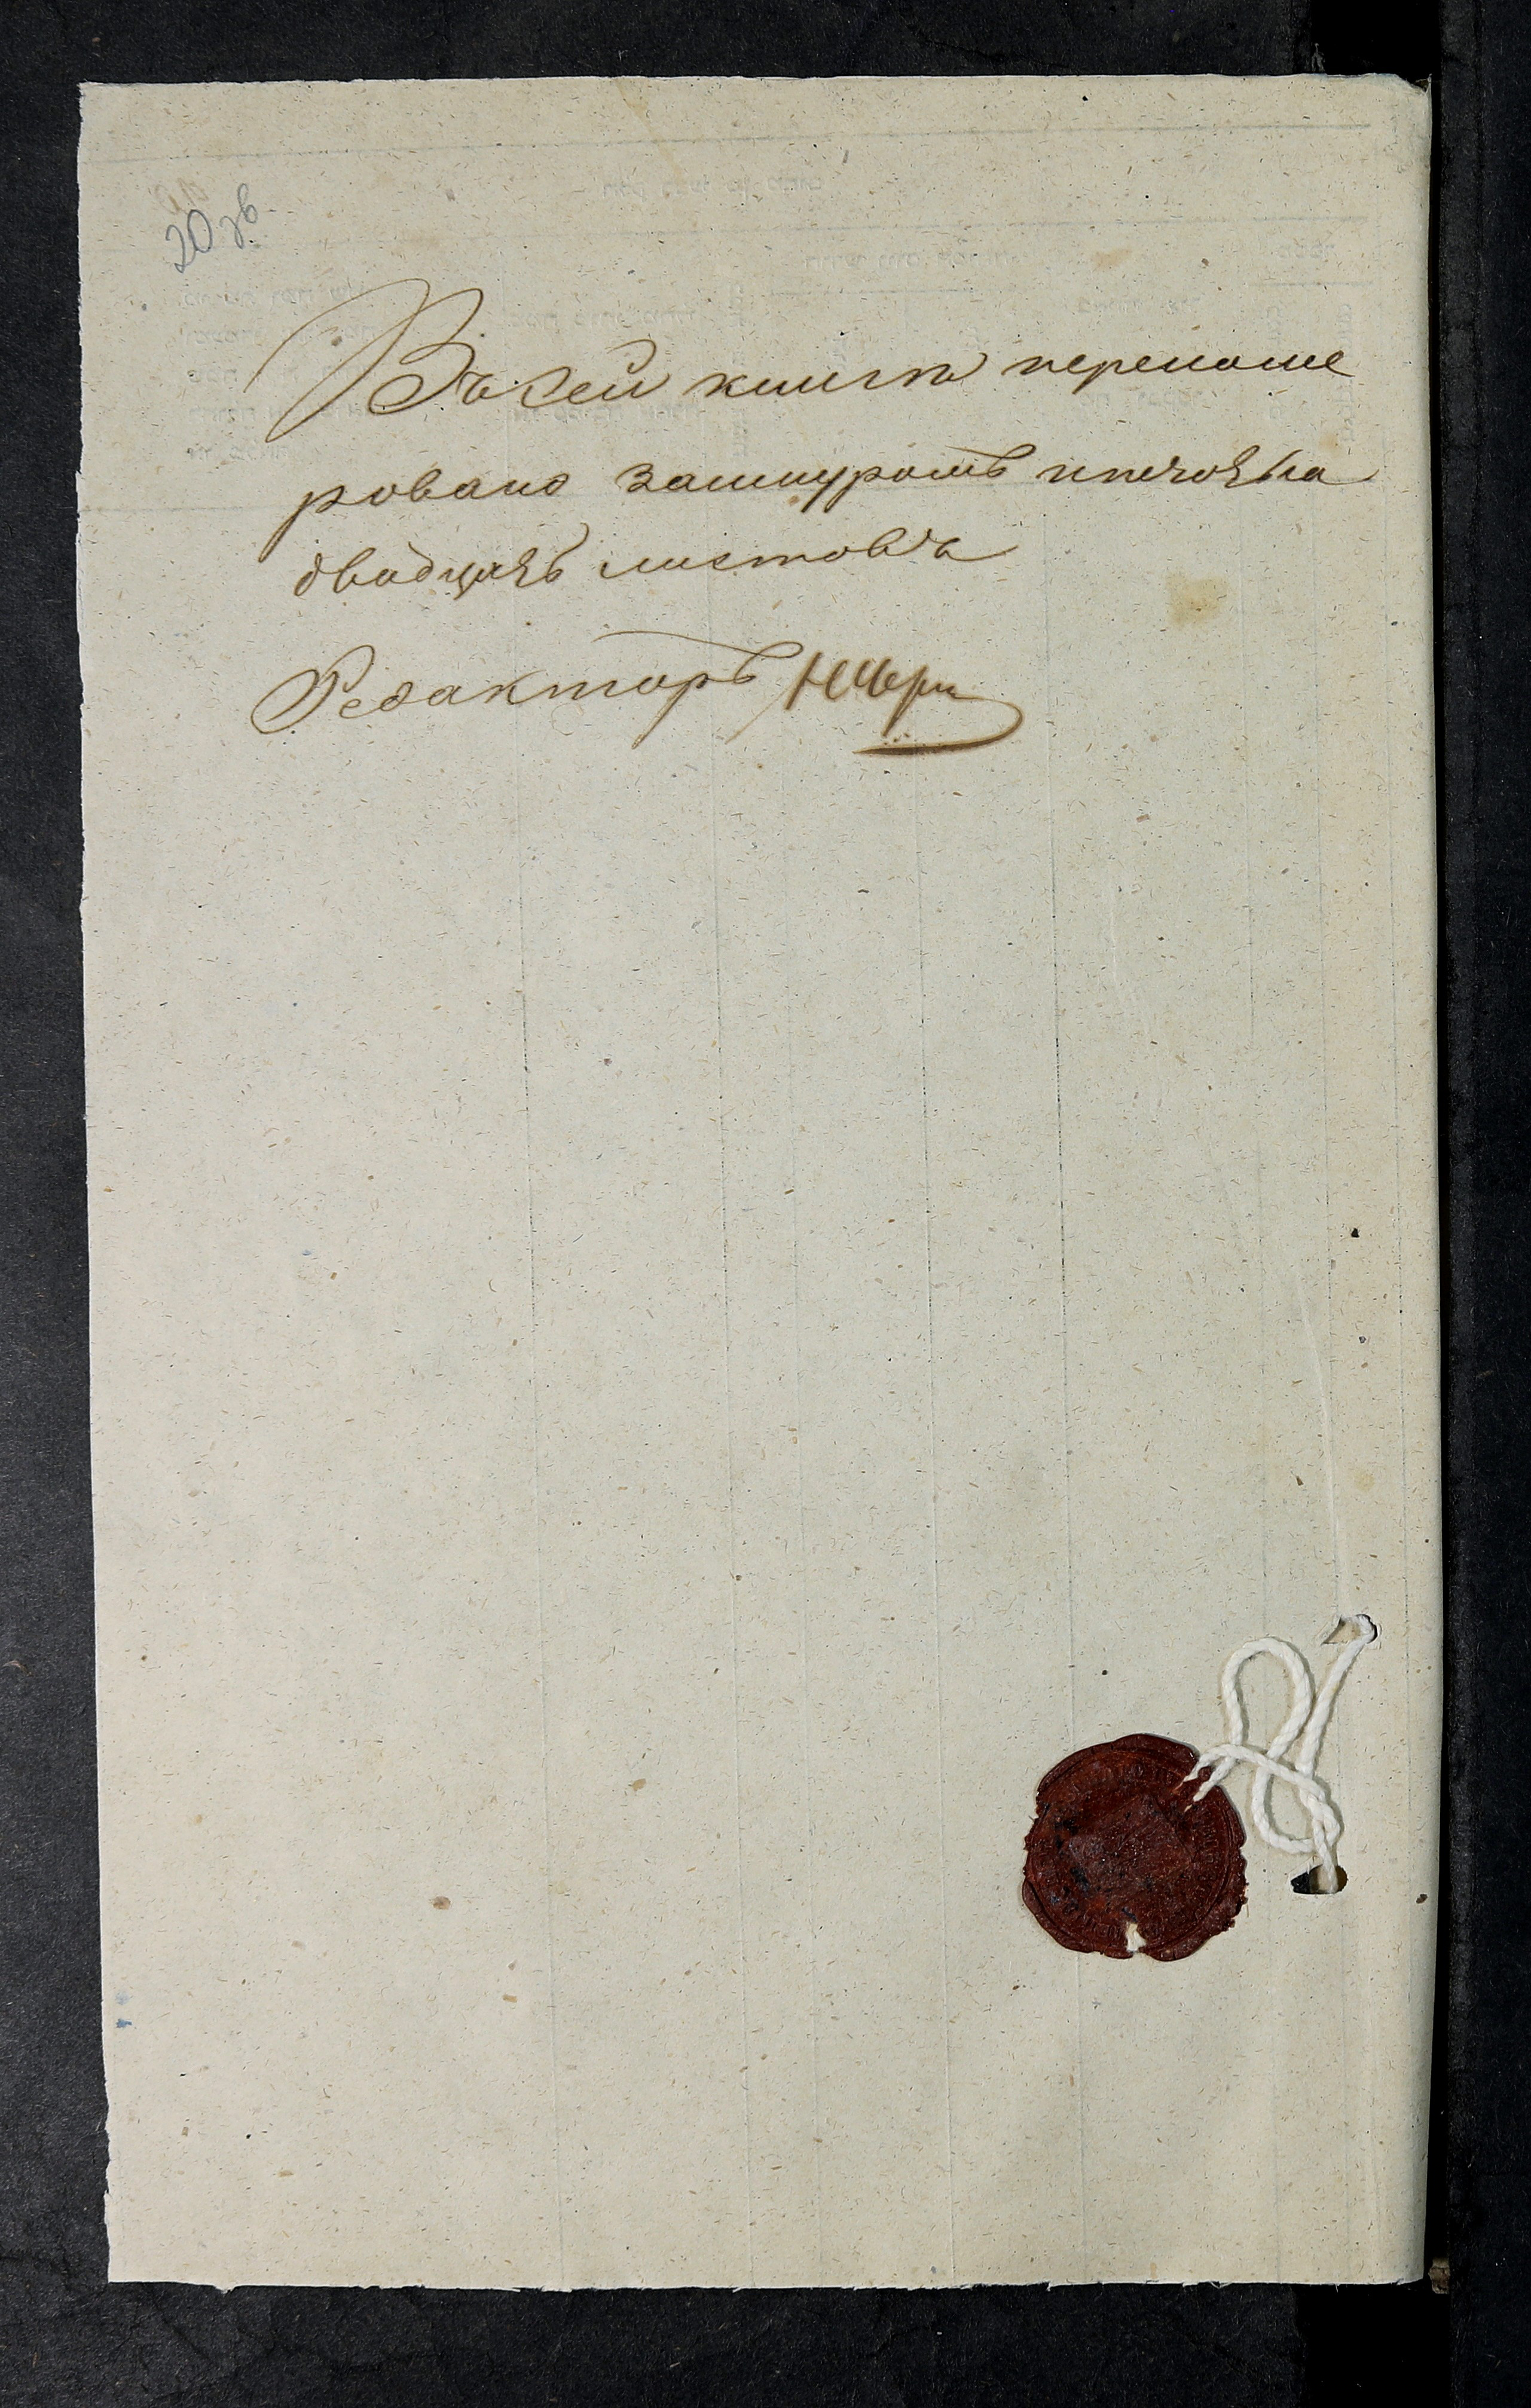 20 зв
Въ сей книге перенуме
ровано зашнуромъ и печатью
двадцать листовъ
Редакторъ